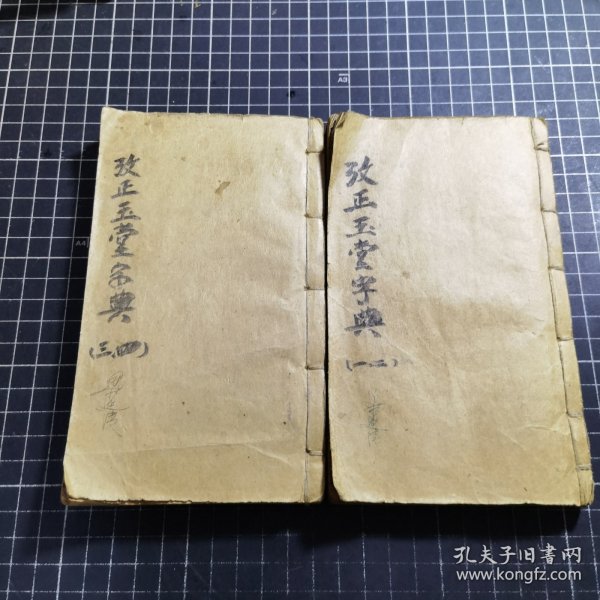 攷正玉堂字典
(一、二)
攷正玉堂字典
(三、四)
孔夫子旧書网
www.kongfz.com
A4
A3